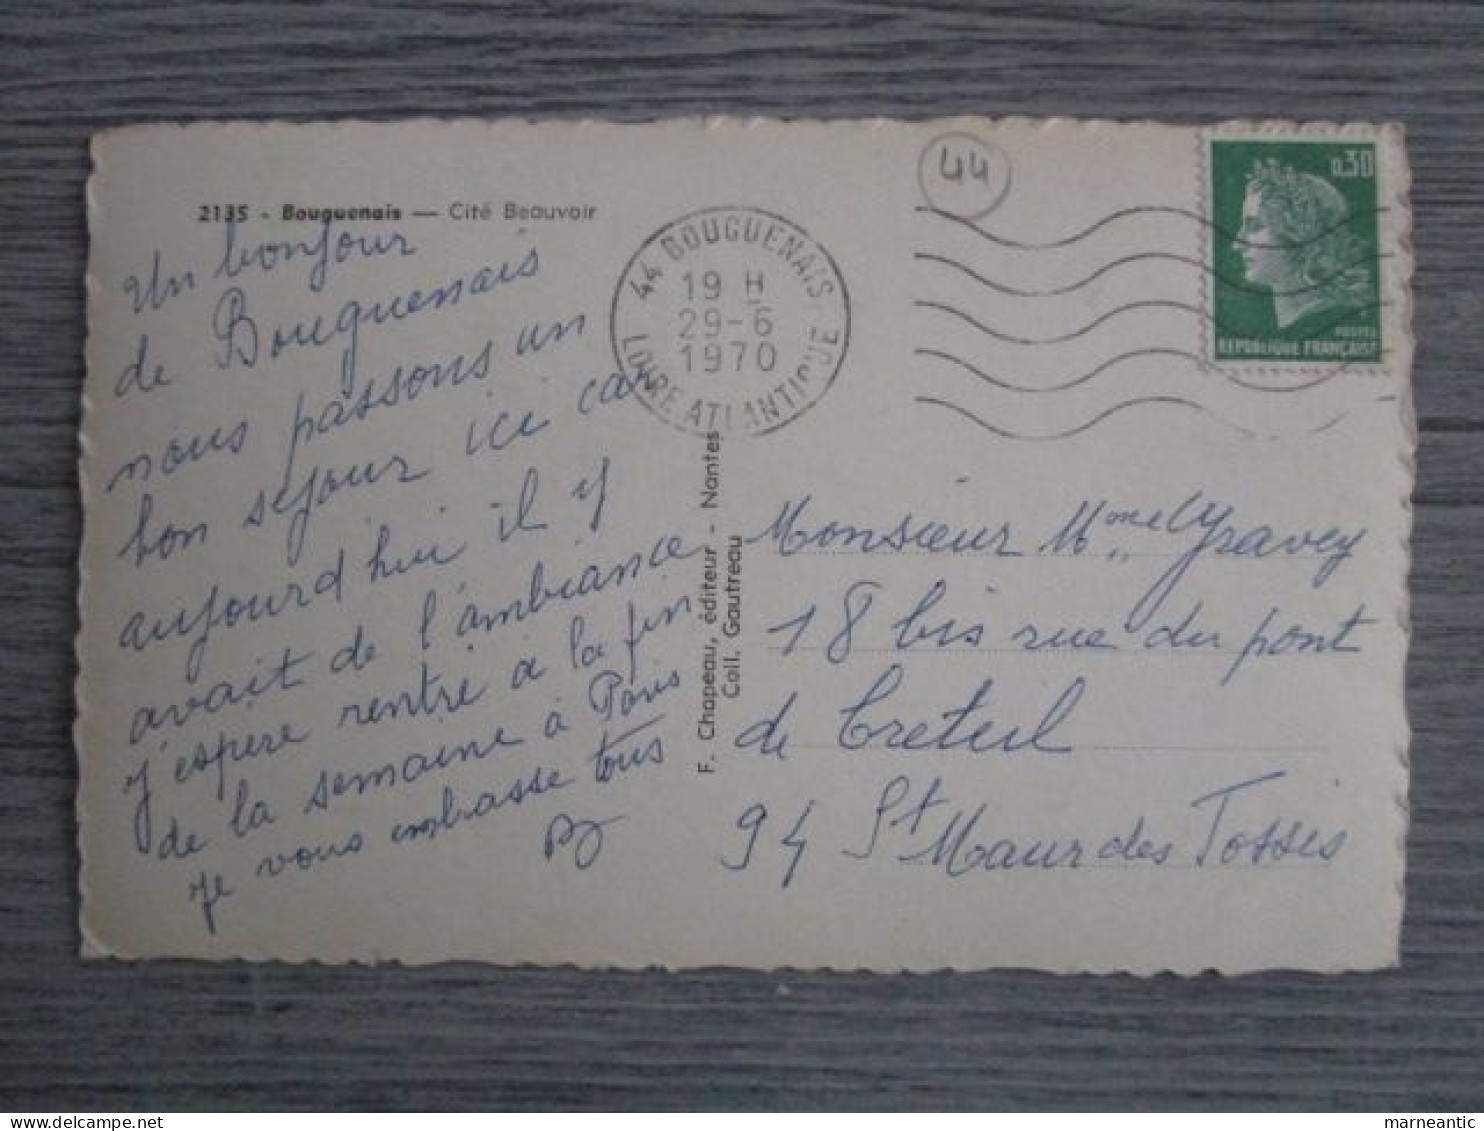 2135 - Bouguenais — Cité Beauvoir
Un bonjour
de Bouguenais
nous passons un
bon sejour ici car
aujourd'hui il y
avait de l'ambiance
j'espere rentré a la fin
de la semaine à Paris
je vous embrasse tous
44
44 BOUGUENAIS
19 H
29-6
1970
LOIRE ATLANTIQUE
0,30
POSTES
REPUBLIQUE FRANÇAISE
F. Chapeau, éditeur - Nantes
Coll. Gautreau
Monsieur Mme Gravey
18 bis rue du pont
de Creteil
94 St Maur des Fossés
marneantic